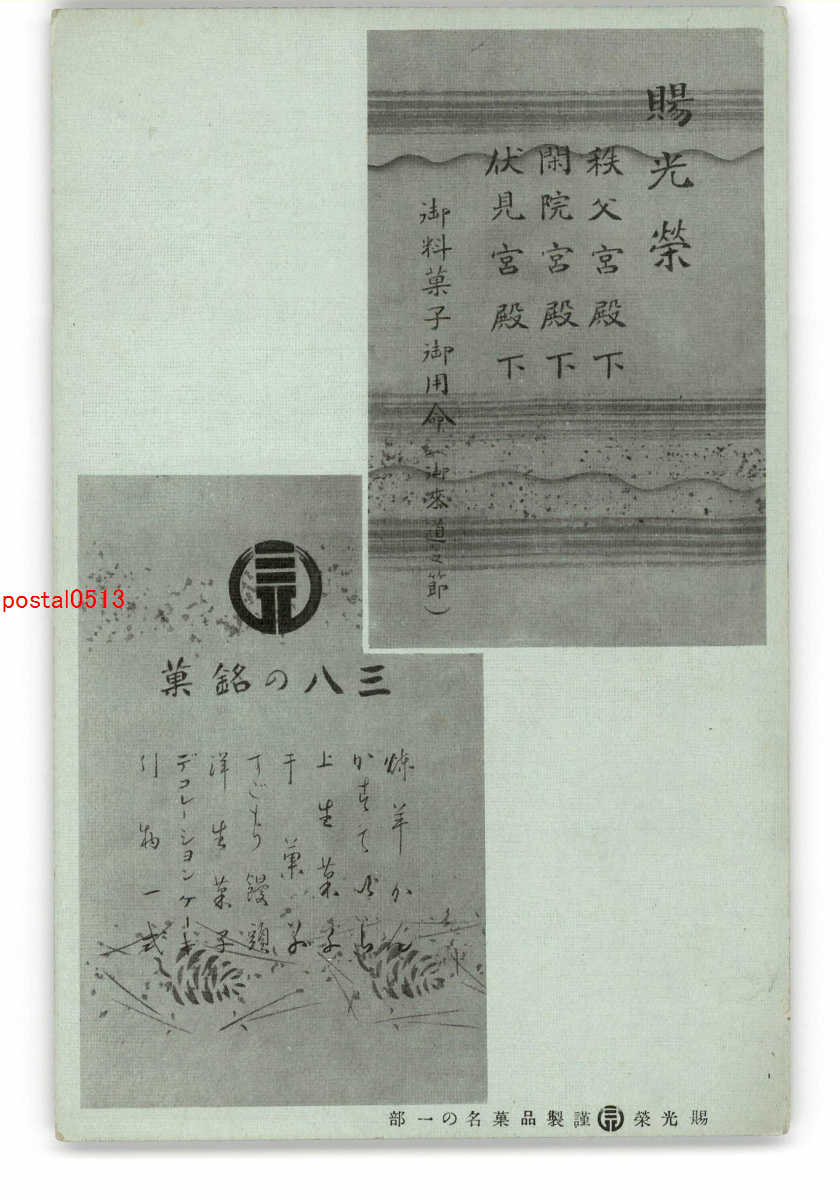 賜光榮
秩父宮殿下
閑院宮殿下
伏見宮殿下
御料菓子御用命
三八の銘菓
煉羊かん
かすていら
上生菓子
干菓子
すごもり饅頭
洋生菓子
デコレーションケーキ
引物一式
賜光榮 謹製品菓名の一部
postal0513